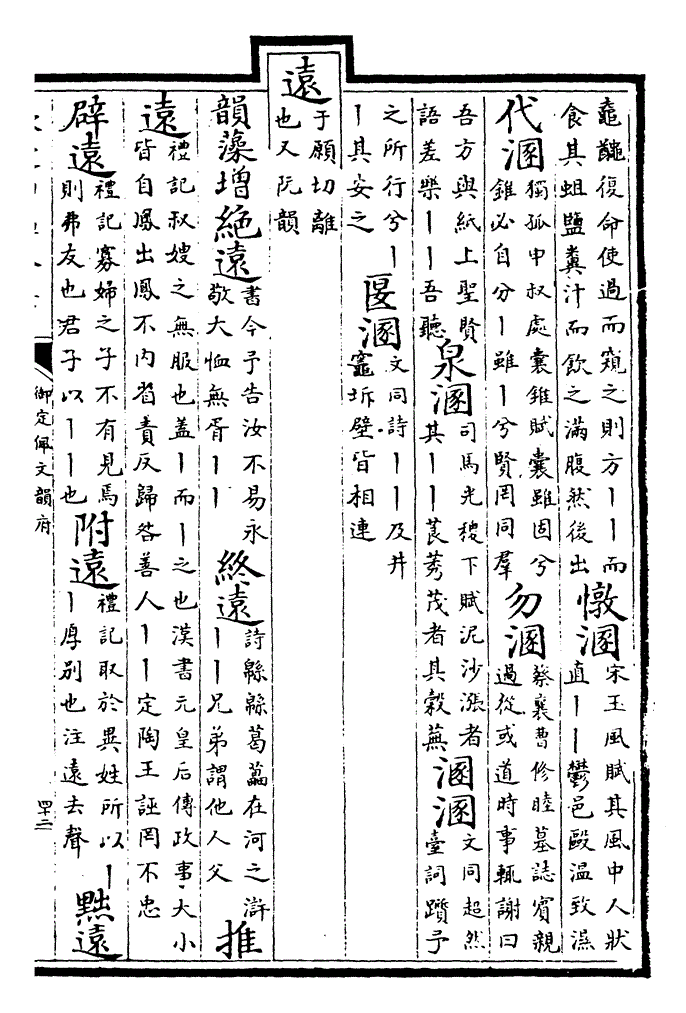 龜龖復命使過而窺之則方丨丨而
食其蛆鹽糞汁而飲之滿腹然後出
憞溷
宋玉風賦其風中人狀
直丨丨鬱邑毆温致濕
代溷
獨孤申叔處囊錐賦囊雖固兮
錐必自分丨雖丨兮賢罔同羣
勿溷
蔡襄曹修睦墓誌賓親
過從或道時事輒謝曰
吾方與紙上聖賢
語差樂丨丨吾聽
泉溷
司馬光稷下賦泥沙漲者
其丨丨莨莠茂者其穀蕪
溷溷
文同超然
臺詞躓予
之所行兮丨
丨其安之
匽溷
文同詩丨丨及井
竈坼壁皆相連
遠
于願切離
也又阮韻
韻藻增
絶遠
書今予告汝不易永
敬大恤無胥丨丨
終遠
詩緜緜葛藟在河之滸
丨丨兄弟謂他人父
推
遠
禮記叔嫂之無服也蓋丨而丨之也漢書元皇后傳政事大小
皆自鳳出鳳不内省責反歸咎善人丨丨定陶王誣罔不忠
辟遠
禮記寡婦之子不有見焉
則弗友也君子以丨丨也
附遠
禮記取於異姓所以丨
丨厚别也注遠去聲
黜遠
御定佩文韻府
四十二